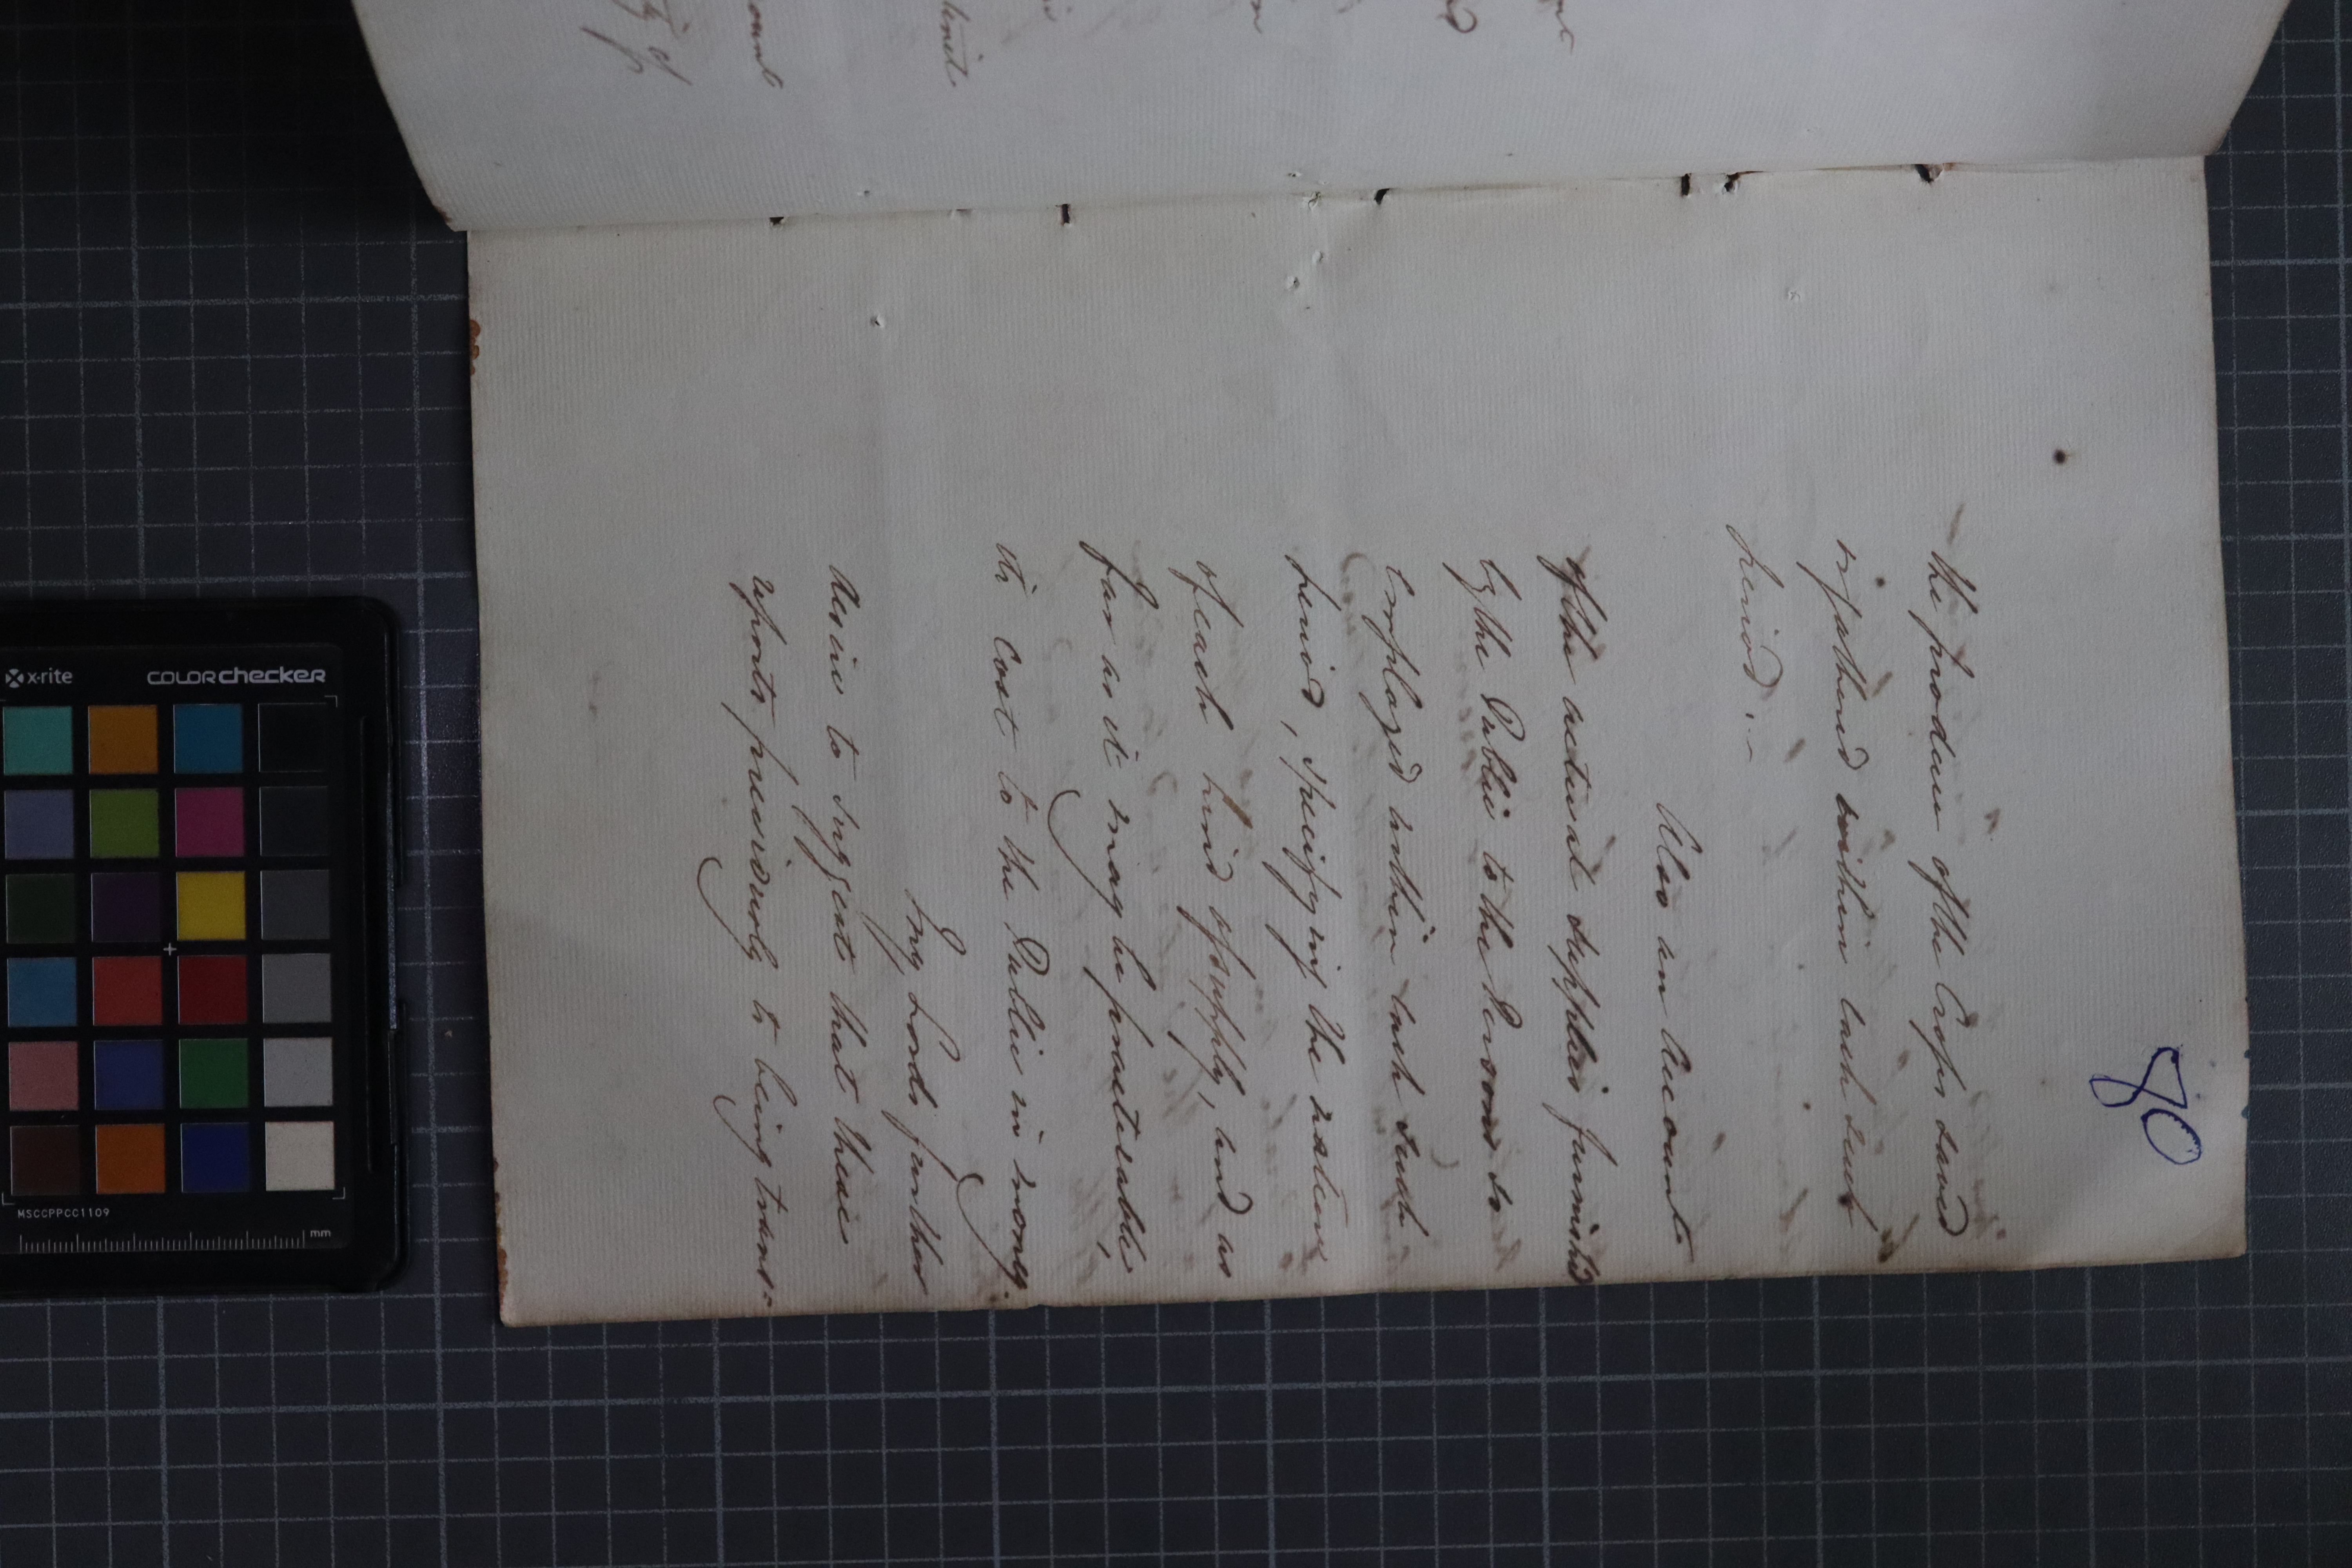 80
the produce of the Crops saved
or gathered within each such
period:—
Also an Account
of the actual supplies furnished
by the Public to the Persons so
employed within each such
period, specifying the nature
of each kind of supply, and as
far as it may be practicable,
its cost to the Public in money.
My Lords further
desire to suggest that these
reports previously to being trans-
ty of
ount
x-rite
COLORchecker
MSCCPPCC1109
mm